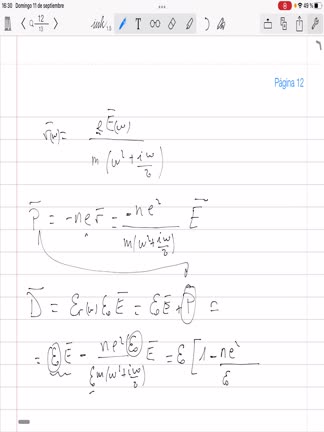 16:30 Domingo 11 de septiembre 49 %
12
Página 12
r̄(ω) = e Ē(ω) / m(ω² + iω/τ)
P̄ = -n e r̄ = -n e² / m(ω² + iω/τ) Ē
D̄ = ε_r(ω) ε₀ Ē = ε₀ Ē + P̄ =
= ε₀ Ē - n e² ε₀ / ε₀ m(ω² + iω/τ) Ē = ε₀ [ 1 - n e² / ε₀